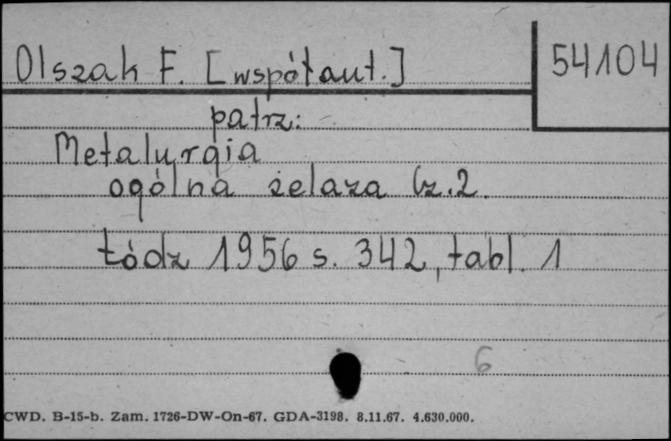 Olszak F. [współaut.]
54104
patrz:
Metalurgia
ogólna żelaza Cz.2.
Łódz 1956 s. 342, tabl. 1
6
CWD. B-15-b. Zam. 1726-DW-On-67. GDA-3198. 8.11.67. 4.630.000.